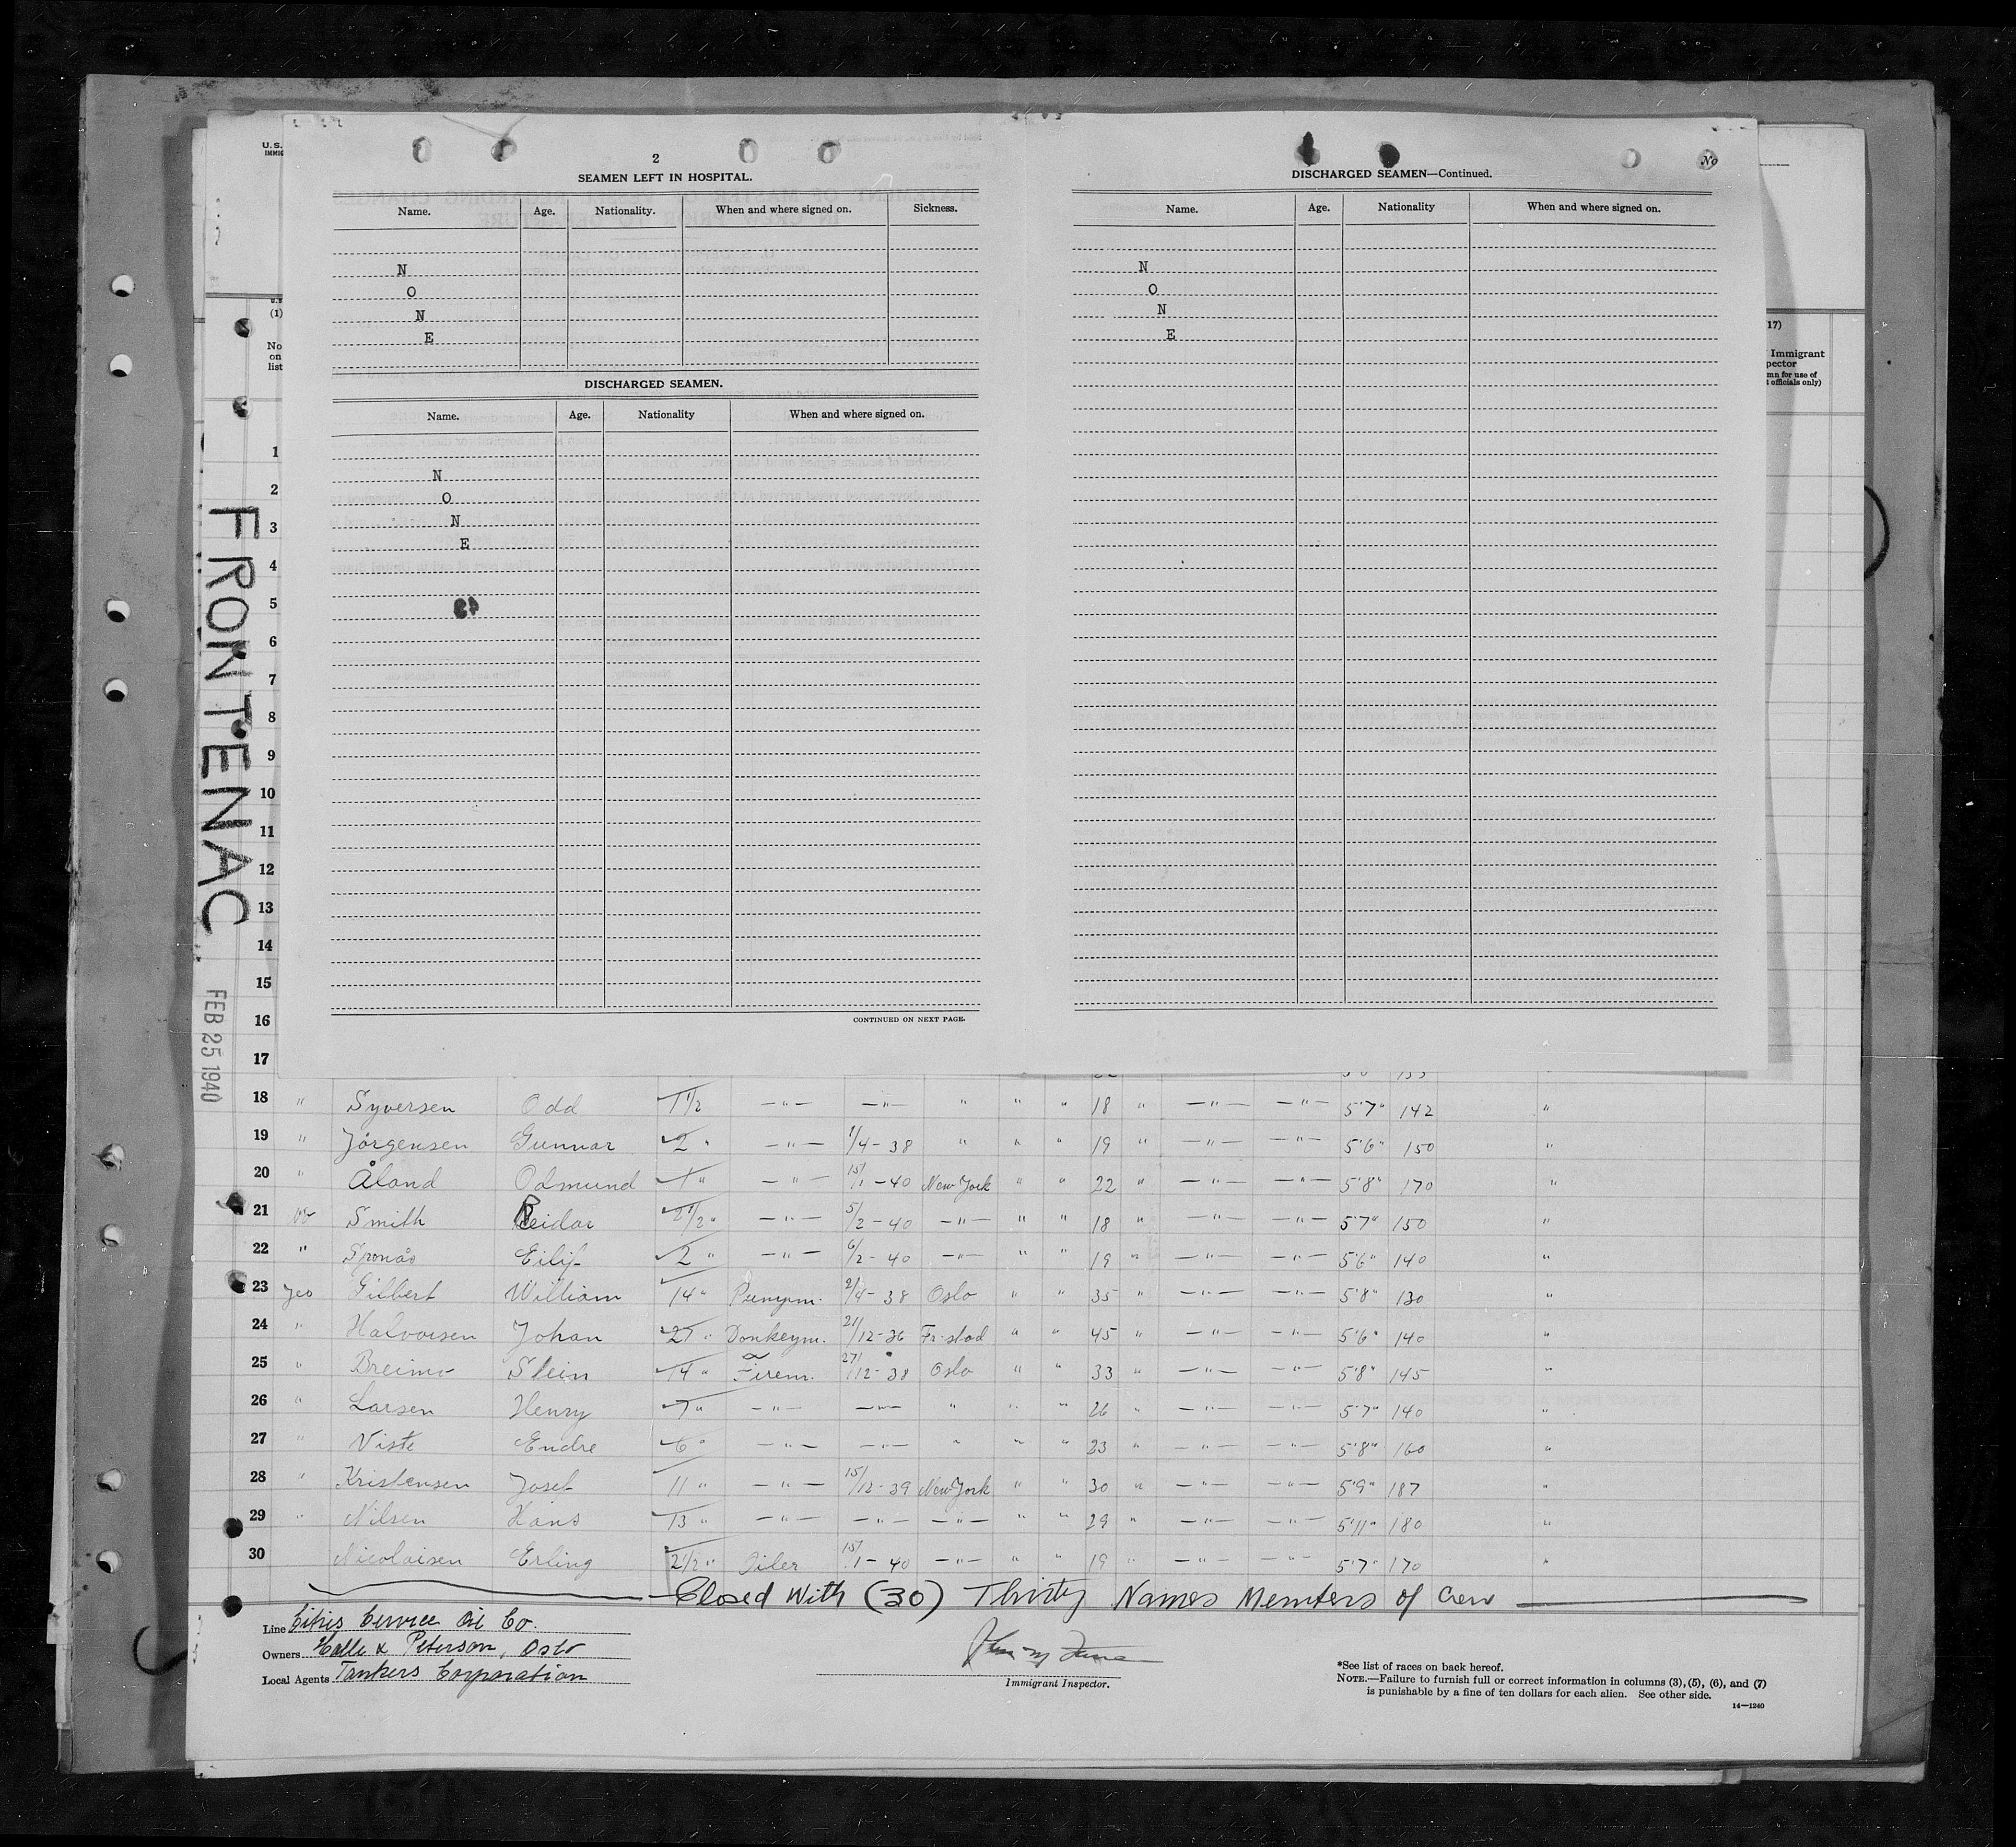 2
SEAMEN LEFT IN HOSPITAL.
Name. Age. Nationality. When and where signed on. Sickness.
N
O
N
E
DISCHARGED SEAMEN.
Name. Age. Nationality When and where signed on.
N
O
N
E
CONTINUED ON NEXT PAGE.
No
DISCHARGED SEAMEN—Continued.
Name. Age. Nationality When and where signed on.
N
O
N
E
U.S.
(1)
No
on
list
17)
Immigrant
pector
mn for use of
officials only)
FRONTENAC
FEB 25 1940
1
2
3
4
5
6
7
8
9
10
11
12
13
14
15
16
17
18 " Syversen Odd 1 1/2 —"— —"— " " " 18 " —"— —"— 5'7" 142 "
19 " Jörgensen Gunnar 2 " —"— 1/4-38 " " " 19 " —"— —"— 5'6" 150 "
20 " Åland Odmund 1 " —"— 15/1-40 New York " " 22 " —"— —"— 5'8" 170 "
21 Smith Reidar 2 1/2 " —"— 5/2-40 —"— " " 18 " —"— —"— 5'7" 150 "
22 " Sponås Eilif 2 " —"— 6/2-40 —"— " " 19 " —"— —"— 5'6" 140 "
23 Yes Gilbert William 14 " Pumpm. 2/4-38 Oslo " " 35 " —"— —"— 5'8" 130 "
24 " Halvorsen Johan 27 " Donkeym. 21/12-36 Fr.stad " " 45 " —"— —"— 5'6" 140 "
25 " Breimo Stein 14 " Firem. 27/12-38 Oslo " " 33 " —"— —"— 5'8" 145 "
26 " Larsen Henry 7 " —"— —"— " " " 26 " —"— —"— 5'7" 140 "
27 " Viste Endre 6 " —"— —"— " " " 23 " —"— —"— 5'8" 160 "
28 " Kristensen Josef 11 " —"— 15/12-39 New York " " 30 " —"— —"— 5'9" 187 "
29 " Nilsen Hans 13 " —"— —"— —"— " " 29 " —"— —"— 5'11" 180 "
30 Nicolaisen Erling 2 1/2 " Oiler 15/1-40 —"— " " 19 " —"— —"— 5'7" 170 "
Closed With (30) Thirty Names Members of Crew
Line Cities Service Oil Co.
Owners Halle & Peterson, Oslo
Local Agents Tankers Corporation
Immigrant Inspector.
*See list of races on back hereof.
NOTE.—Failure to furnish full or correct information in columns (3), (5), (6), and (7)
is punishable by a fine of ten dollars for each alien. See other side.
14—1240